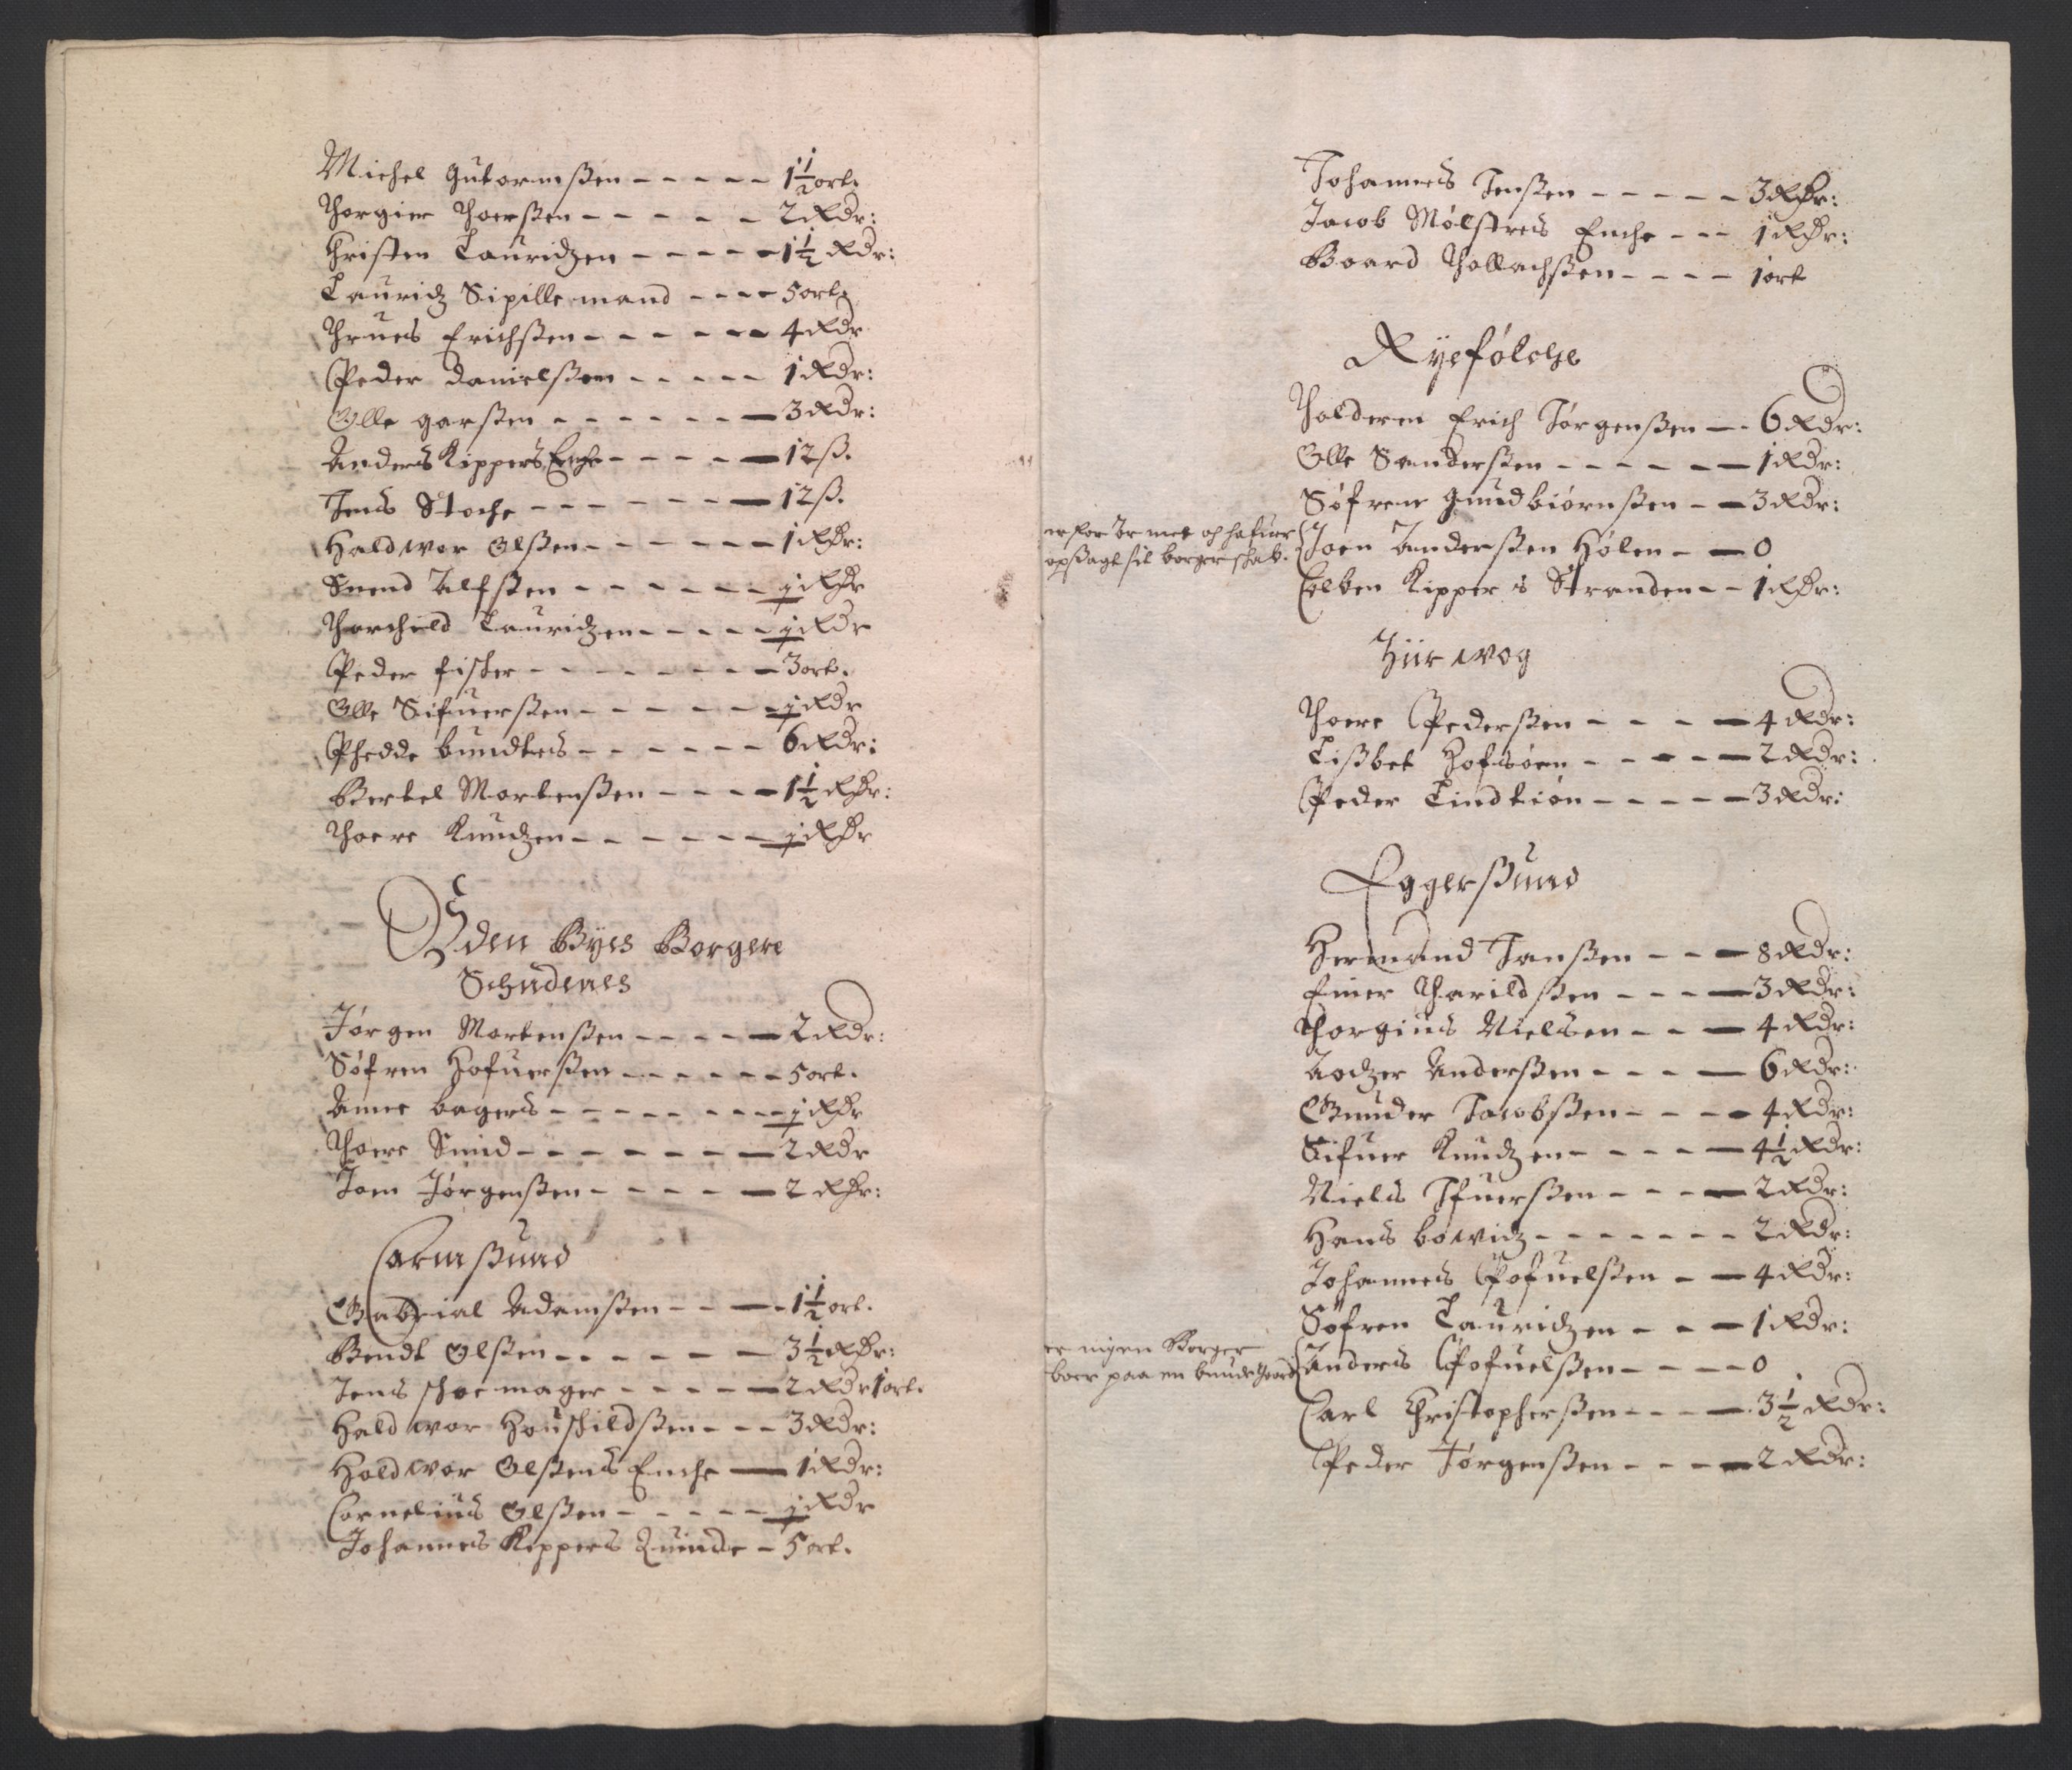 Michel Gutormßen - - - - - 1½ ort.
Thorgier Thoerßen - - - - - 2 Rdr:
Christen Lauridzen - - - - - 1½ Rdr:
Lauridz Sipille mand - - - - 5 ort.
Thrues Erichßen - - - - - - 4 Rdr
Peder Danielßen - - - - - 1 Rdr:
Olle garßen - - - - - - - 3 Rdr:
Anders Kippers Enche - - - - - 12 ß.
Jens Stoche - - - - - - - 12 ß.
Haldwor Olßen - - - - - - 1 Rdr:
Svend Alfßen - - - - - - j Rdr
Thorchild Lauridzen - - - - - j Rdr
Peder fisker - - - - - - - 3 ort.
Olle Sifuerßen - - - - - - j Rdr
Phedde bundtes - - - - - - 6 Rdr:
Bertel Mortenßen - - - - 1½ Rdr:
Thoere Knudzen - - - - - - j Rdr
Uden Byes Borgere
Schudenes
Jørgen Mortenßen - - - - - 2 Rdr:
Søfren Hofuerßen - - - - - - 5 ort.
Anne bagers - - - - - - - - j Rdr
Thoere Smid - - - - - - - 2 Rdr
Joen Jørgenßen - - - - - 2 Rdr:
Carmßund
Gabrial Adamßen - - - - 1½ ort.
Bendt Olßen - - - - - - 3½ Rdr:
Jens schoemager - - - - - 2 Rdr 1 ort.
Haldwor Houschildßen - - - 3 Rdr:
Holdwor Olßens Enche - 1 Rdr:
Cornelius Olßen - - - - - - j Rdr
Johannes Kippers Quinde - 5 ort.
Johannes Jenßen - - - - - 3 Rdr:
Jacob Mølstres Enche - - - 1 Rdr:
Board Thollachßen - - - - 1 ort
Ryefølche
Tholderen Erich Jørgenßen - - 6 Rdr:
Olle Sanderßen - - - - - - 1 Rdr:
Søfrene Gundbiørnßen - - 3 Rdr:
er for armet och hafuer
opßagt sit borgerskab.
Joen Anderßen Hølen - - 0
Colben Kipper i Stranden - - 1 Rdr:
Hiirwog
Thoere Pederßen - - - - 4 Rdr:
Lißbet Hofsøen - - - - - 2 Rdr:
Peder Lindtiøn - - - - - 3 Rdr:
Eggerßund
Hermand Janßen - - - 8 Rdr:
Einer Tharildßen - - - - 3 Rdr:
Thorgius Nielsen - - - 4 Rdr:
Aodzer Anderßen - - - - 6 Rdr:
Gunder Jacobßen - - - - 4 Rdr:
Sifuer Knudzen - - - - - 4½ Rdr:
Niels Ifuerßen - - - - 2 Rdr:
Hans bowidz - - - - - - - 2 Rdr:
Johannes Pofuelßen - - 4 Rdr:
Søfren Lauridzen - - - 1 Rdr:
er ingen Borger
boer paa en bunde Joerd
Anders Pofuelßen - - - - 0
Carl Christopherßen - - - - 3½ Rdr:
Peder Jørgenßen - - - - 2 Rdr: